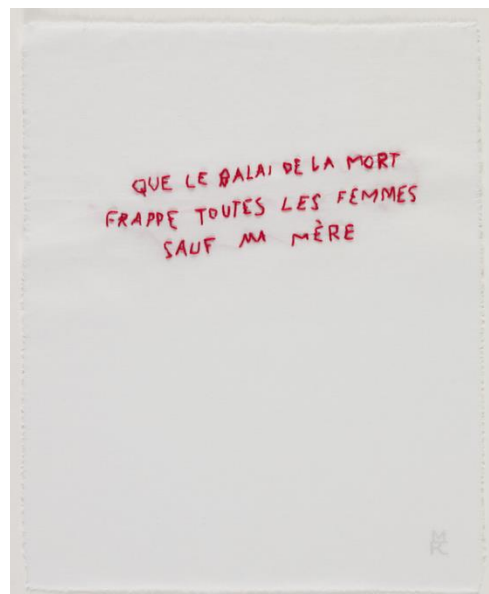 QUE LE BALAI DE LA MORT
FRAPPE TOUTES LES FEMMES
SAUF MA MÈRE
MRC